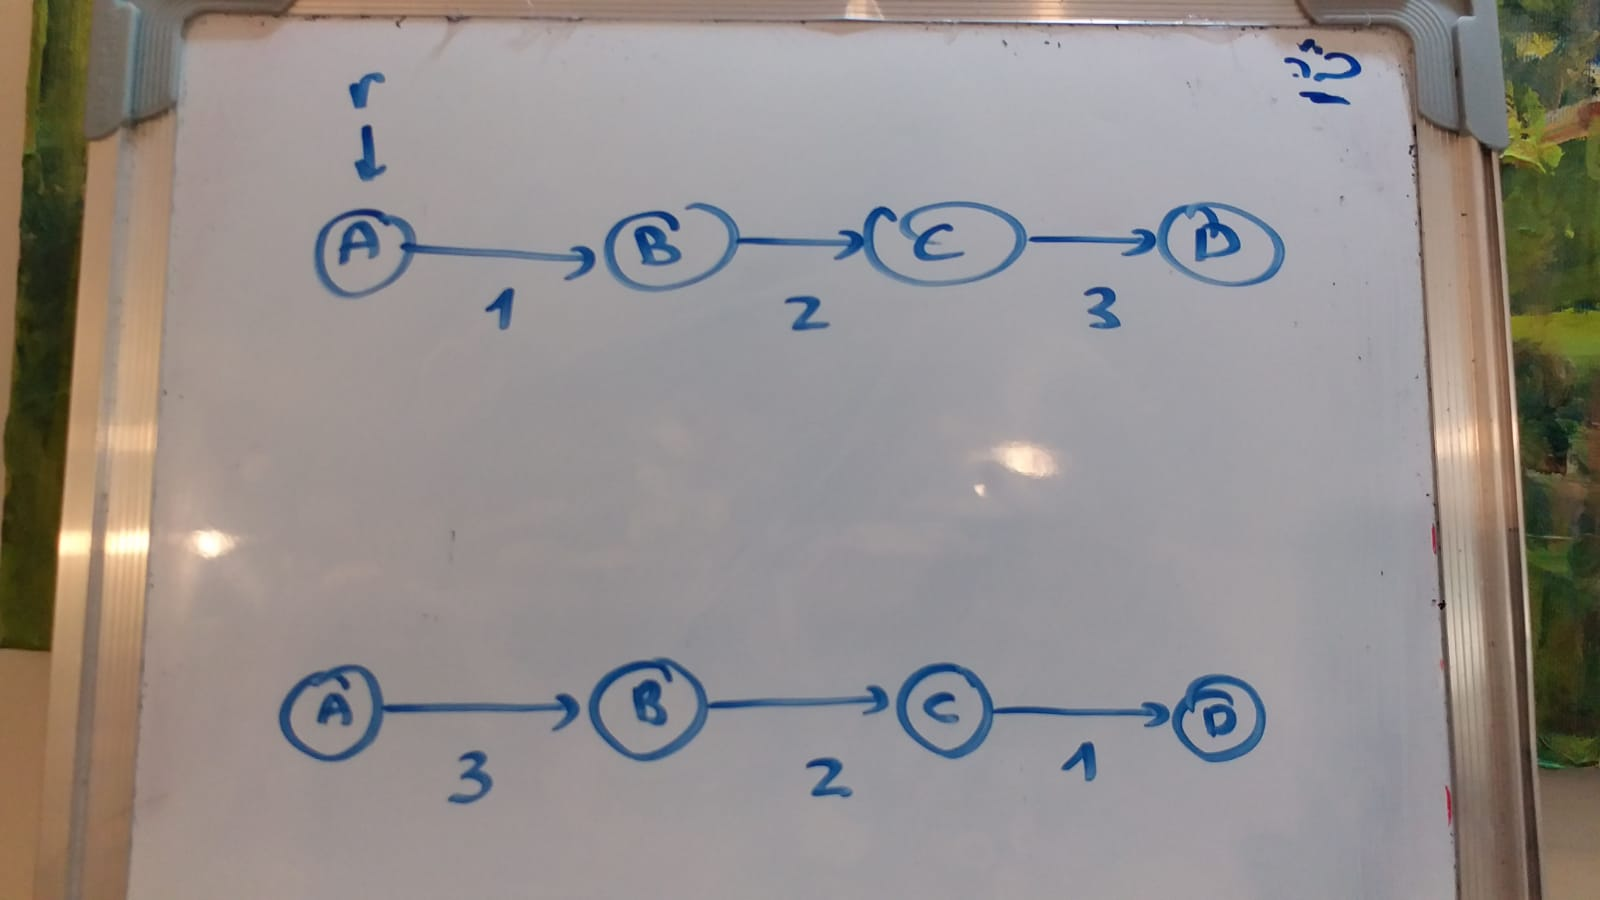 r
A B C D
1 2 3
A B C D
3 2 1